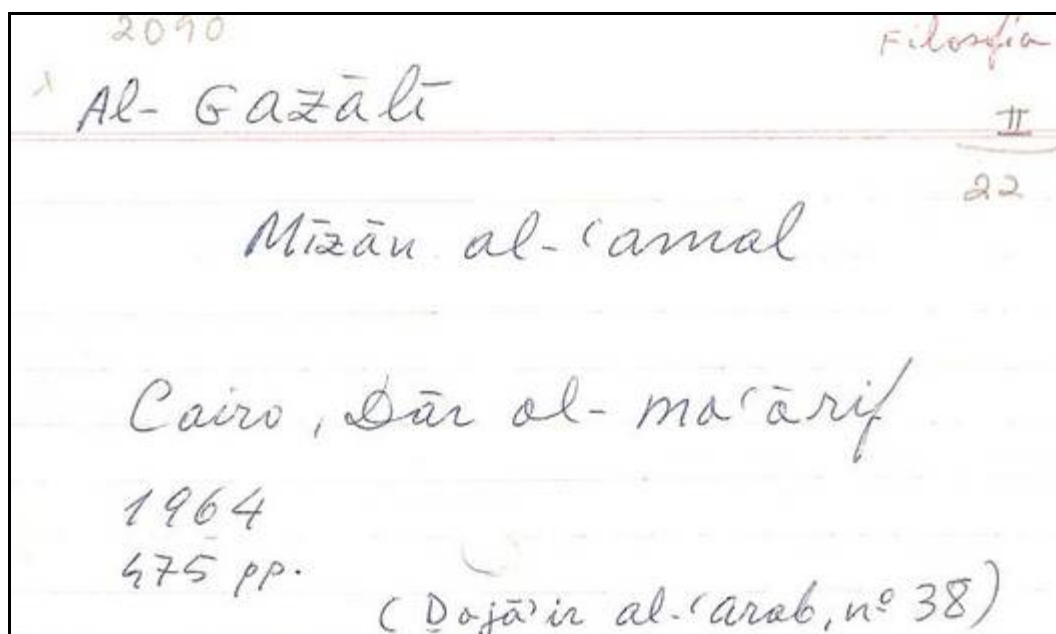 2090
Filosofia
Al- Gazālī
II
22
Mīzān al-ʿamal
Cairo, Dār al-maʿārif
1964
475 pp.
(Ḏajāʾir al-ʿarab, nº 38)